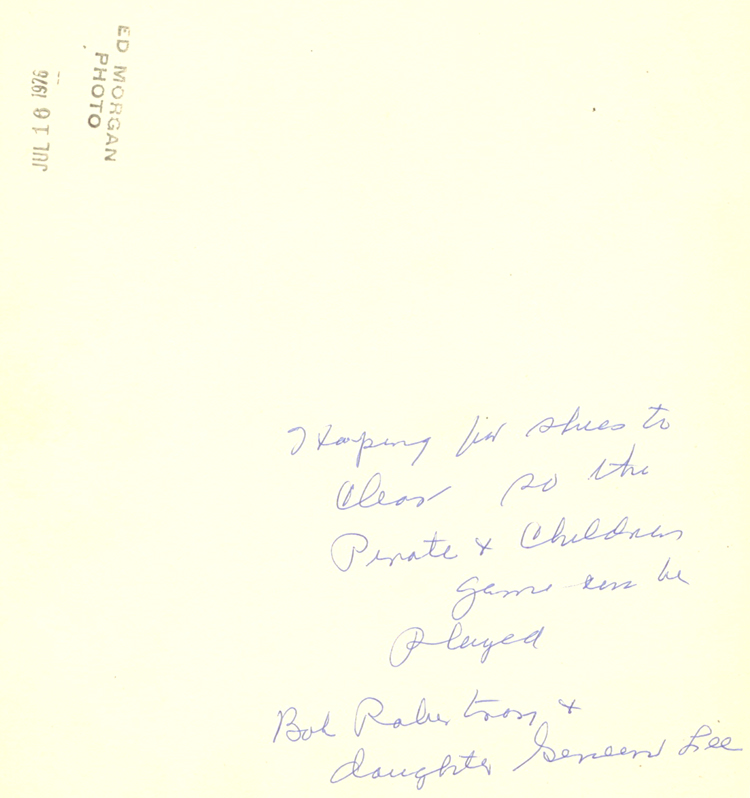 ED MORGAN
PHOTO
JUL 16 1976
Hoping for skies to
clear so the
Pirate & Children
game can be
played
Bob Robertson &
daughter Lee